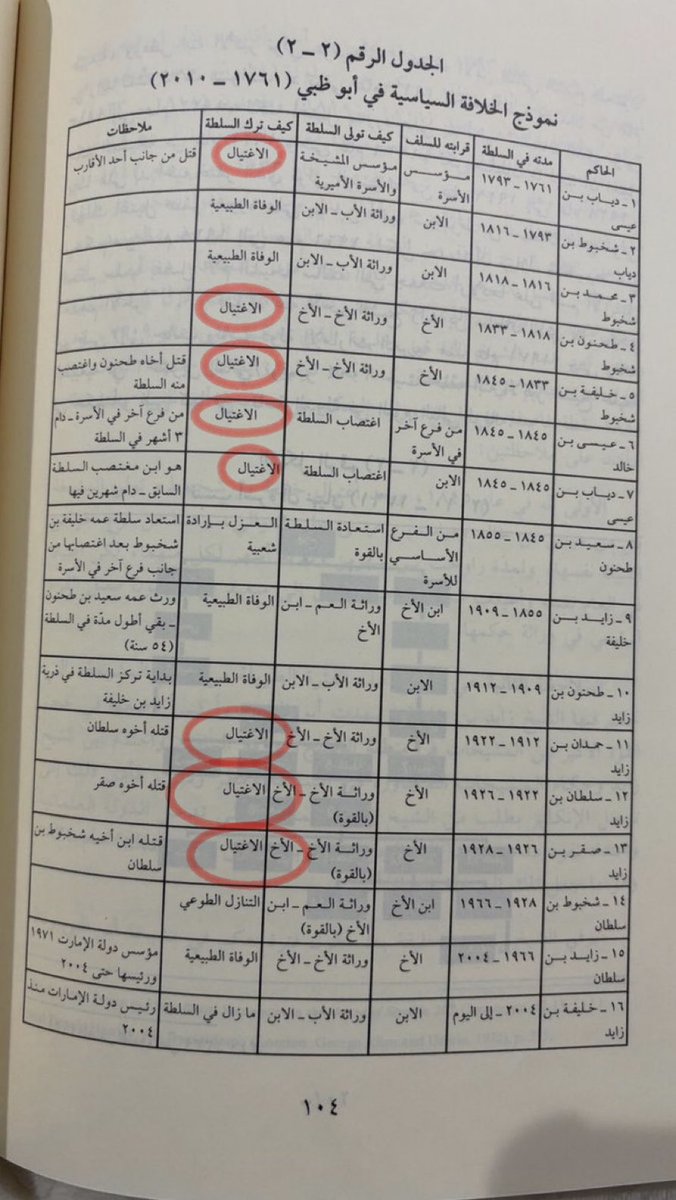 الجدول الرقم (٢ – ٢)
نموذج الخلافة السياسية في أبو ظبي (١٧٦١ – ٢٠١٠)
الحاكم | مدته في السلطة | قرابته للسلف | كيف تولى السلطة | كيف ترك السلطة | ملاحظات
١ – دياب بن عيسى | ١٧٦١ – ١٧٩٣ | مؤسس الأسرة | مؤسس المشيخة والأسرة الأميرية | الاغتيال | قتل من جانب أحد الأقارب
٢ – شخبوط بن دياب | ١٧٩٣ – ١٨١٦ | الابن | وراثة الأب – الابن | الوفاة الطبيعية
٣ – محمد بن شخبوط | ١٨١٦ – ١٨١٨ | الابن | وراثة الأب – الابن | الوفاة الطبيعية
٤ – طحنون بن شخبوط | ١٨١٨ – ١٨٣٣ | الأخ | وراثة الأخ – الأخ | الاغتيال
٥ – خليفة بن شخبوط | ١٨٣٣ – ١٨٤٥ | الأخ | وراثة الأخ – الأخ | الاغتيال | قتل أخاه طحنون واغتصب منه السلطة
٦ – عيسى بن خالد | ١٨٤٥ – ١٨٤٥ | من فرع آخر في الأسرة | اغتصاب السلطة | الاغتيال | من فرع آخر في الأسرة – دام ٣ أشهر في السلطة
٧ – دياب بن عيسى | ١٨٤٥ – ١٨٤٥ | الابن | اغتصاب السلطة | الاغتيال | هو ابن مغتصب السلطة السابق – دام شهرين فيها
٨ – سعيد بن طحنون | ١٨٤٥ – ١٨٥٥ | من الفرع الأساسي للأسرة | استعادة السلطة بالقوة | العزل بإرادة شعبية | استعاد سلطة عمه خليفة بن شخبوط بعد اغتصابها من جانب فرع آخر في الأسرة
٩ – زايد بن خليفة | ١٨٥٥ – ١٩٠٩ | ابن الأخ | وراثة العم – ابن الأخ | الوفاة الطبيعية | ورث عمه سعيد بن طحنون – بقي أطول مدّة في السلطة (٥٤ سنة)
١٠ – طحنون بن زايد | ١٩٠٩ – ١٩١٢ | الابن | وراثة الأب – الابن | الوفاة الطبيعية | بداية تركز السلطة في ذرية زايد بن خليفة
١١ – حمدان بن زايد | ١٩١٢ – ١٩٢٢ | الأخ | وراثة الأخ – الأخ | الاغتيال | قتله أخوه سلطان
١٢ – سلطان بن زايد | ١٩٢٢ – ١٩٢٦ | الأخ | وراثة الأخ – الأخ (بالقوة) | الاغتيال | قتله أخوه صقر
١٣ – صقر بن زايد | ١٩٢٦ – ١٩٢٨ | الأخ | وراثة الأخ – الأخ (بالقوة) | الاغتيال | قتله ابن أخيه شخبوط بن سلطان
١٤ – شخبوط بن سلطان | ١٩٢٨ – ١٩٦٦ | ابن الأخ | وراثة العم – ابن الأخ (بالقوة) | التنازل الطوعي
١٥ – زايد بن سلطان | ١٩٦٦ – ٢٠٠٤ | الأخ | وراثة الأخ – الأخ | الوفاة الطبيعية | مؤسس دولة الإمارت ١٩٧١ ورئيسها حتى ٢٠٠٤
١٦ – خليفة بن زايد | ٢٠٠٤ – إلى اليوم | الابن | وراثة الأب – الابن | ما زال في السلطة | رئيس دولة الإمارات منذ ٢٠٠٤
١٠٤